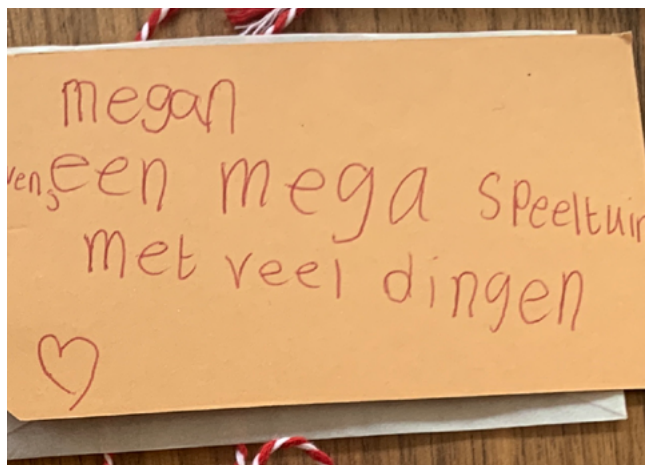 megan
wens een mega speeltuin
met veel dingen